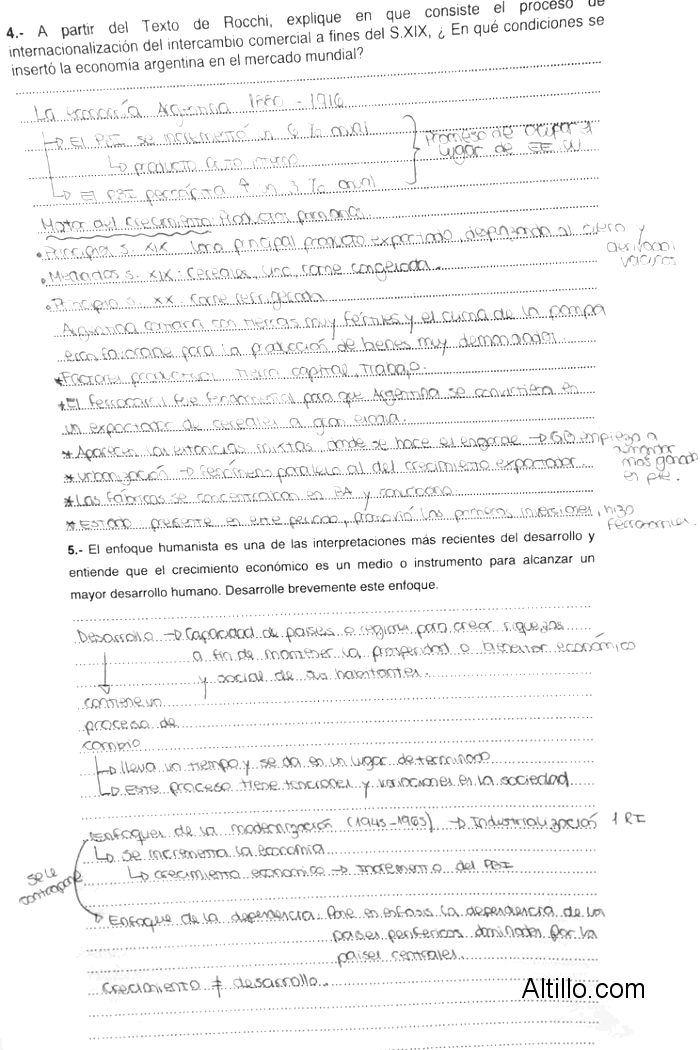 4.- A partir del Texto de Rocchi, explique en que consiste el proceso de
internacionalización del intercambio comercial a fines del S.XIX, ¿ En qué condiciones se
insertó la economía argentina en el mercado mundial?
La economía Argentina 1880 - 1916
↳ El PBI se incrementó un 6 % anual
↳ producto
↳ El PBI per cápita ↑ un 3 % anual
Promesa de ocupar el
lugar de EE UU
Motor del crecimiento: Productos primarios.
• Principio s. XIX lana principal producto exportado, desplazando al cuero y
derivados
vacunos
• Mediados s. XIX: Cereales, lino, carne congelada.
• Principio s. XX carne refrigerada
Argentina contaba con tierras muy fértiles y el clima de la pampa
eran favorable para la producción de bienes muy demandados.
* Factores productivos: Tierra, capital, Trabajo.
* El ferrocarril fue fundamental para que Argentina se convirtiera en
un exportador de cereales a gran escala.
* Aparecen las estancias mixtas donde se hace el engorde → GB empieza a
demandar
más ganado
en pie.
* Urbanización → fenómeno paralelo al del crecimiento exportador.
* Las fábricas se concentraban en BA y
* Estado presente en este período, promovió las primeras inversiones, hizo
ferrocarriles.
5.- El enfoque humanista es una de las interpretaciones más recientes del desarrollo y
entiende que el crecimiento económico es un medio o instrumento para alcanzar un
mayor desarrollo humano. Desarrolle brevemente este enfoque.
Desarrollo → Capacidad de países o regiones para crear riquezas
a fin de mantener la prosperidad o bienestar económico
y social de sus habitantes.
contiene un
proceso de
cambio
↳ lleva un tiempo y se da en un lugar determinado
↳ Este proceso tiene tensiones y variaciones en la sociedad
Enfoques de la modernización (1945-1965) → Industrialización 1 RI
↳ Se incrementa la economía
↳ Crecimiento económico → Incremento del PBI
se le
contrapone
Enfoque de la dependencia: Pone en enfasis la dependencia de los
países periféricos dominados por los
países centrales.
Crecimiento ≠ desarrollo.
Altillo.com